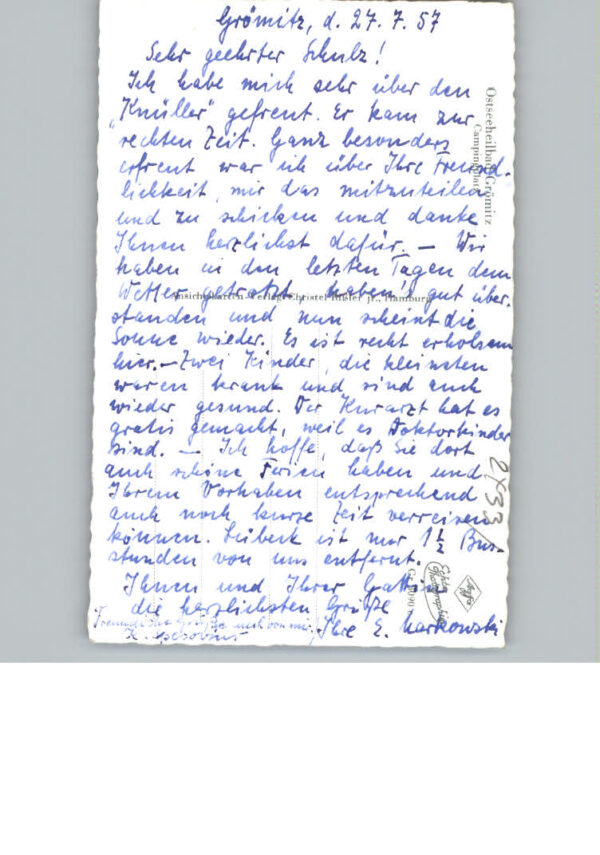 Grömitz, d. 27. 7. 57
Sehr geehrter Schulz!
Ich habe mich sehr über den
"Knüller" gefreut. Er kam zur
rechten Zeit. Ganz besonders
erfreut war ich über Ihre Freund-
lichkeit, mir das mitzuteilen
und zu schicken und danke
Ihnen herzlichst dafür. — Wir
haben in den letzten Tagen dem
Wetter getrotzt, haben's gut über-
standen und nun scheint die
Sonne wieder. Es ist recht erholsam
hier. — Zwei Kinder, die kleinsten
waren krank und sind auch
wieder gesund. Der Kurarzt hat es
gratis gemacht, weil es Doktorkinder
sind. — Ich hoffe, daß Sie dort
auch schöne Ferien haben und
Ihrem Vorhaben entsprechend
auch noch kurze Zeit verreisen
können. Lübeck ist nur 1 1/2 Bus-
stunden von uns entfernt.
Ihnen und Ihrer Gattin
die herzlichsten Grüße
Ihre E. Markowski
auch von mir
Ostseeheilbad Grömitz
Campingplatz
Ansichtskarten-Verlag Christel Jr., Hamburg
2x33
Echte
Photographie
Agfa